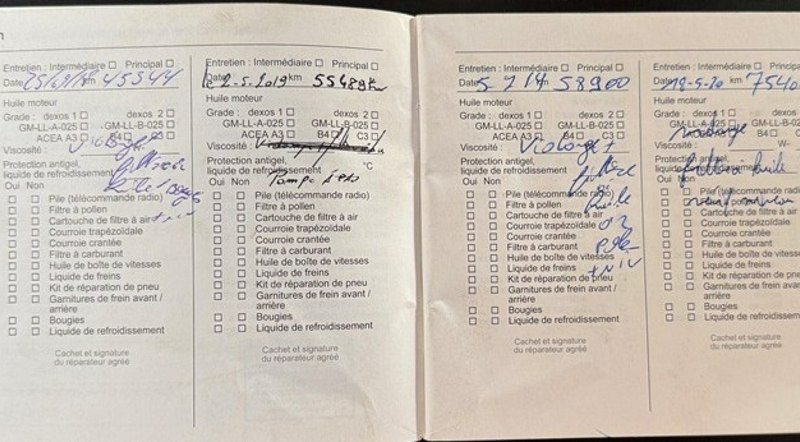 Entretien : Intermédiaire ☐ Principal ☐
Date 25/09/18 km 45344
Huile moteur
Grade : dexos 1 ☐ dexos 2 ☐
GM-LL-A-025 ☐ GM-LL-B-025 ☐
ACEA A3 ☐ B4 ☐ C3 ☐
Viscosité :
Protection antigel,
liquide de refroidissement
Oui Non
☐ ☐ Pile (télécommande radio)
☐ ☐ Filtre à pollen
☐ ☐ Cartouche de filtre à air
☐ ☐ Courroie trapézoïdale
☐ ☐ Courroie crantée
☐ ☐ Filtre à carburant
☐ ☐ Huile de boîte de vitesses
☐ ☐ Liquide de freins
☐ ☐ Kit de réparation de pneu
☐ ☐ Garnitures de frein avant /
arrière
☐ ☐ Bougies
☐ ☐ Liquide de refroidissement
Cachet et signature
du réparateur agréé
Entretien : Intermédiaire ☐ Principal ☐
Date le 2-5-2019 km 55489 km
Huile moteur
Grade : dexos 1 ☐ dexos 2 ☐
GM-LL-A-025 ☐ GM-LL-B-025 ☐
ACEA A3 ☐ B4 ☐ C3 ☐
Viscosité :
Protection antigel,
liquide de refroidissement °C
Pampe
Oui Non
☐ ☐ Pile (télécommande radio)
☐ ☐ Filtre à pollen
☐ ☐ Cartouche de filtre à air
☐ ☐ Courroie trapézoïdale
☐ ☐ Courroie crantée
☐ ☐ Filtre à carburant
☐ ☐ Huile de boîte de vitesses
☐ ☐ Liquide de freins
☐ ☐ Kit de réparation de pneu
☐ ☐ Garnitures de frein avant /
arrière
☐ ☐ Bougies
☐ ☐ Liquide de refroidissement
Cachet et signature
du réparateur agréé
Entretien : Intermédiaire ☐ Principal ☐
Date 5 7 19 km 58900
Huile moteur
Grade : dexos 1 ☐ dexos 2 ☐
GM-LL-A-025 ☐ GM-LL-B-025 ☐
ACEA A3 ☐ B4 ☐ C3 ☐
Viscosité :
Protection antigel,
liquide de refroidissement
huile
Oui Non
☐ ☐ Pile (télécommande radio)
☐ ☐ Filtre à pollen
☐ ☐ Cartouche de filtre à air
☐ ☐ Courroie trapézoïdale
☐ ☐ Courroie crantée
☐ ☐ Filtre à carburant
☐ ☐ Huile de boîte de vitesses
☐ ☐ Liquide de freins
+ NIV
☐ ☐ Kit de réparation de pneu
☐ ☐ Garnitures de frein avant /
arrière
☐ ☐ Bougies
☐ ☐ Liquide de refroidissement
Cachet et signature
du réparateur agréé
Entretien : Intermédiaire ☐ Principal
Date 18-5-20 km 7540
Huile moteur
Grade : dexos 1 ☐ dexos 2
GM-LL-A-025 ☐ GM-LL-B-025
B4 ☐ C3
Viscosité : W-
Protection antigel,
liquide de refroidissement
huile
Oui Non
☐ ☐ Pile (télécommande radio)
☐ ☐
☐ ☐ Cartouche de filtre à air
☐ ☐ Courroie trapézoïdale
☐ ☐ Courroie crantée
☐ ☐ Filtre à carburant
☐ ☐ Huile de boîte de vitesses
☐ ☐ Liquide de freins
☐ ☐ Kit de réparation de pneu
☐ ☐ Garnitures de frein avant /
arrière
☐ ☐ Bougies
☐ ☐ Liquide de refroidissement
Cachet et signature
du réparateur agréé